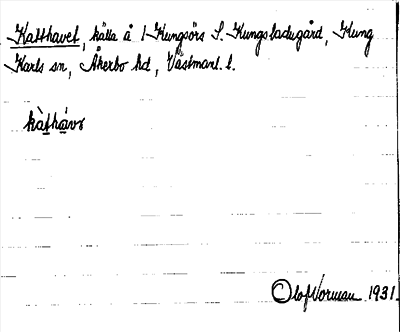 Katthavet, källa å 1 Kungsörs S. Kungsladugård, Kung
Karls sn, Åkerbo hd, Västmanl. l.
kàthávə
Olof Norman 1931.